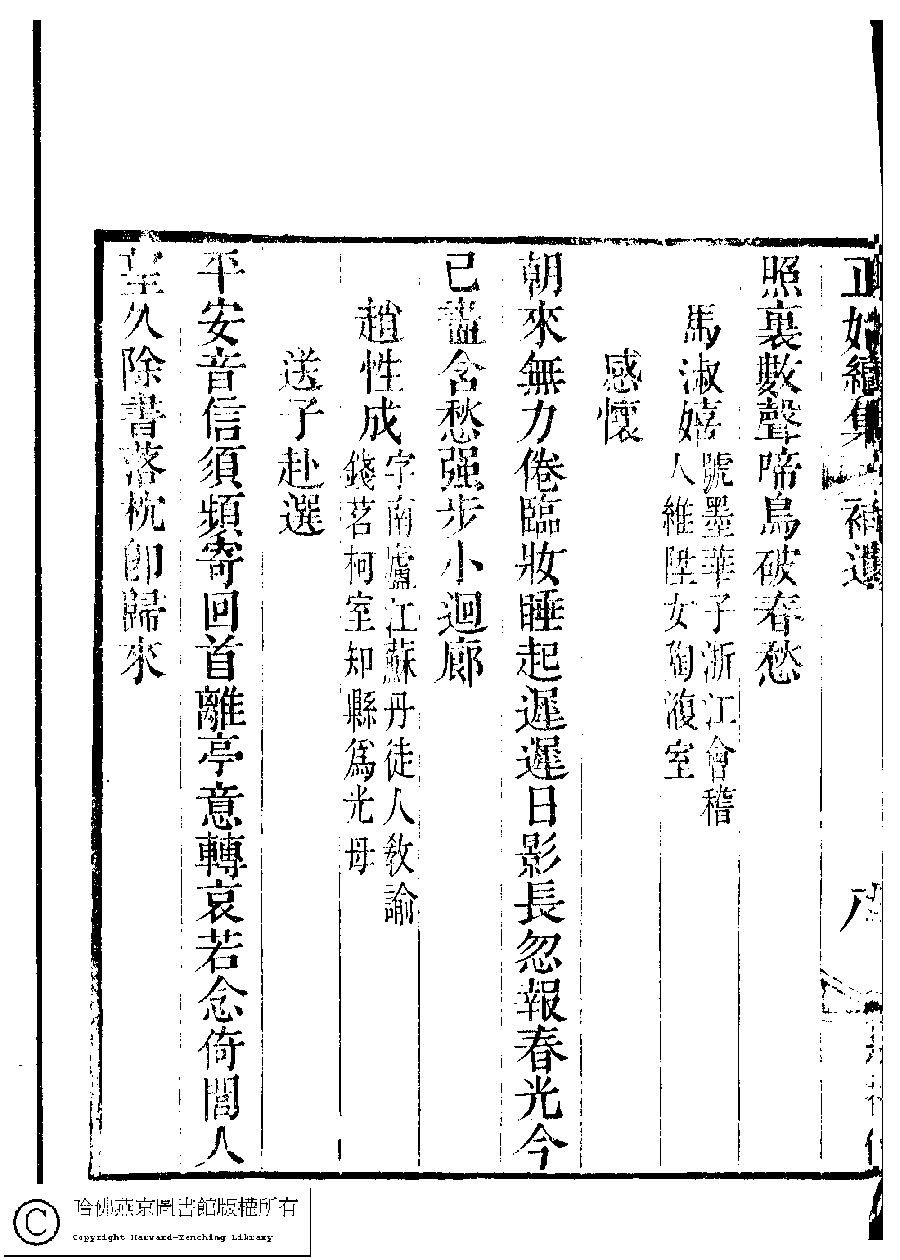 正始續集 補遺 八
照裏數聲啼鳥破春愁
馬淑嬉 號墨華子浙江會稽
人維陞女陶澓室
感懷
朝來無力倦臨妝睡起遲遲日影長忽報春光今
已盡含愁强步小迴廊
趙性成 字南廬江蘇丹徒人敎諭
錢茗柯室知縣爲光母
送子赴選
平安音信須頻寄回首離亭意轉哀若念倚閭人
望久除書落枕卽歸來
哈佛燕京圖書館版權所有
Copyright Harvard-Yenching Library